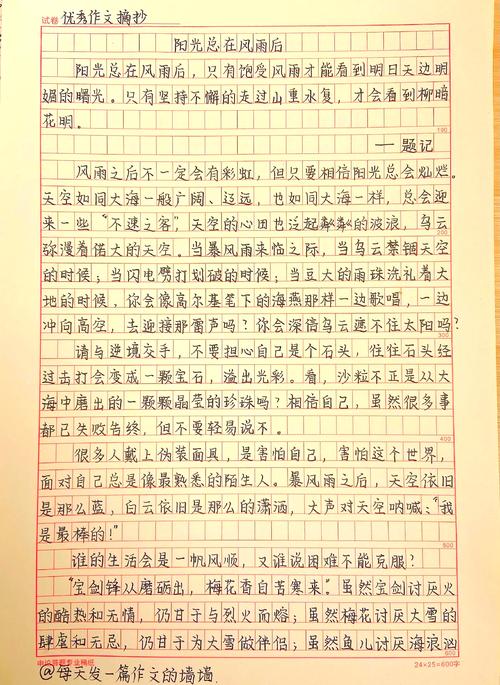 试卷 优秀作文摘抄
阳光总在风雨后
阳光总在风雨后，只有饱受风雨才能看到明日天边明
媚的曙光。只有坚持不懈的走过山重水复，才会看到柳暗
花明。
100
——题记
风雨之后不一定会有彩虹，但只要相信阳光总会灿烂。
天空如同大海一般广阔、辽远，也如同大海一样，总会迎
来一些“不速之客”，天空的心田也泛起粼粼的波浪，乌云
200
弥漫着偌大的天空。当暴风雨来临之际，当乌云禁锢天空
的时候；当闪电劈打划破的时候；当豆大的雨珠洗礼着大
地的时候，你会像高尔基笔下的海燕那样一边歌唱，一边
冲向高空，去迎接那雷声吗？你会深信乌云遮不住太阳吗？
300
请与逆境交手，不要担心自己是个石头，往往石头经
过击打会变成一颗宝石，溢出光彩。看，沙粒不正是从大
海中磨出的一颗颗晶莹的珍珠吗？相信自己，虽然很多事
都已失败告终，但不要轻易说不。
400
很多人戴上伪装面具，是害怕自己，害怕这个世界，
面对自己总是像最熟悉的陌生人。暴风雨之后，天空依旧
是那么蓝，白云依旧是那么的潇洒，大声对天空呐喊：“我
是最棒的！”
500
谁的生活会是一帆风顺，又谁说困难不能克服？
“宝剑锋从磨砺出，梅花香自苦寒来。”虽然宝剑讨厌火
的酷热和无情，仍甘于与烈火而熔；虽然梅花讨厌大雪的
肆虐和无忌，仍甘于为大雪做伴侣；虽然鱼儿讨厌海浪汹
600
24×25=600字
@每天发一篇作文的墙墙